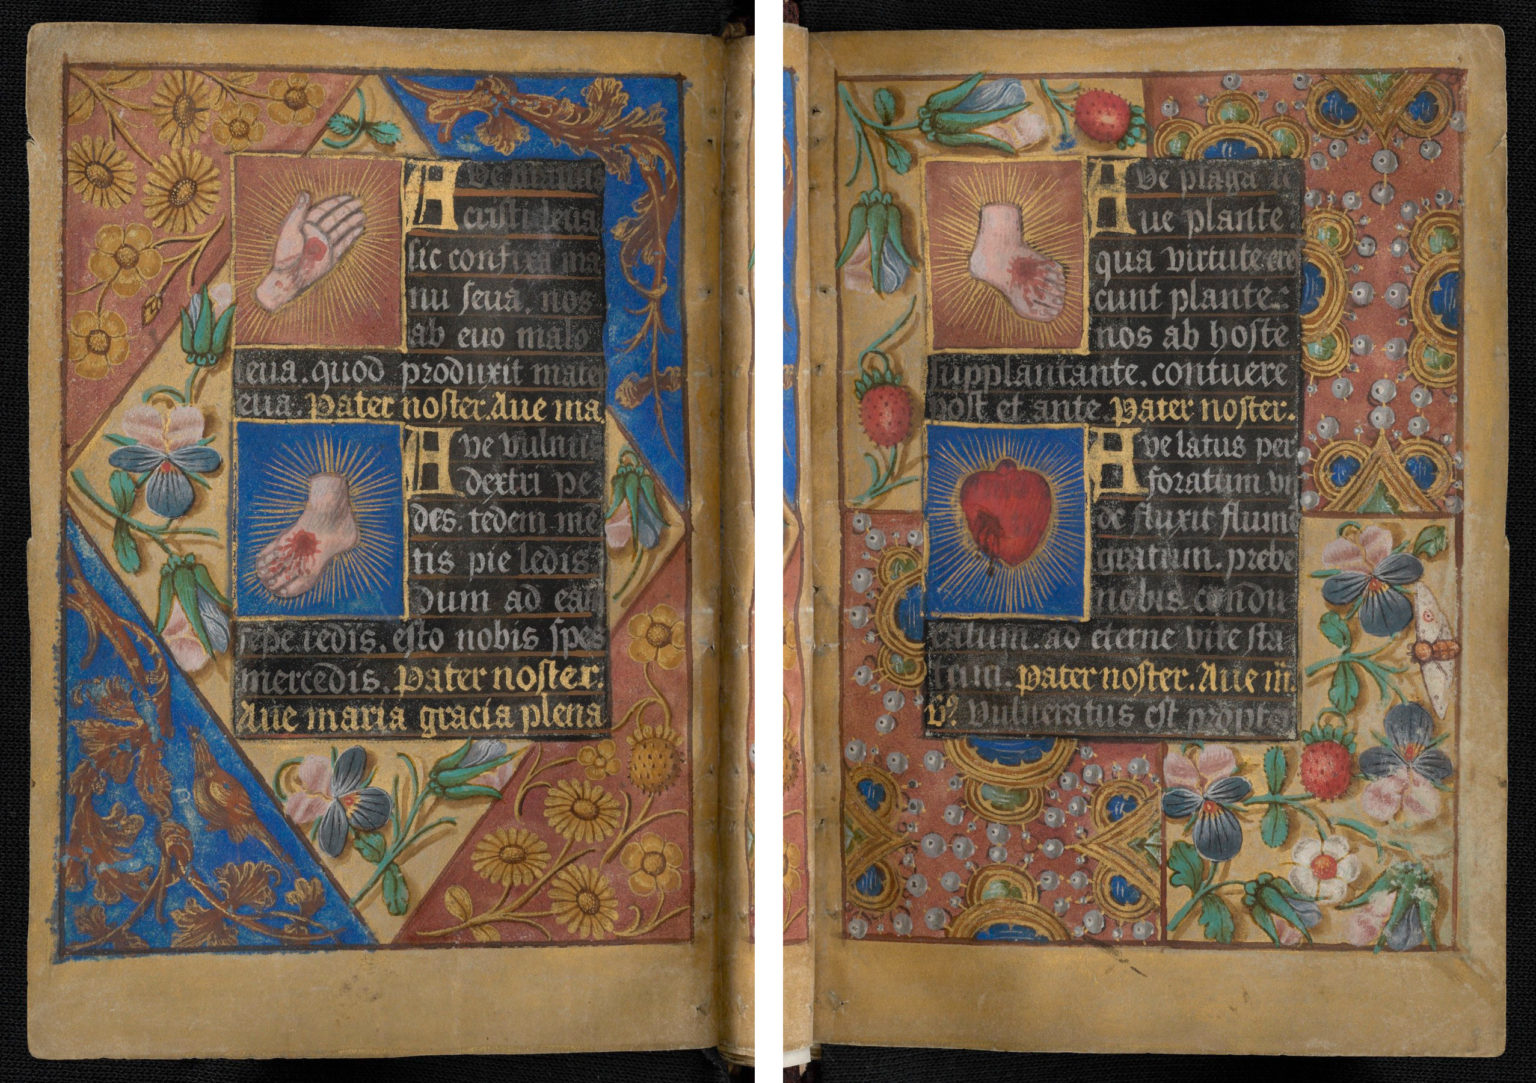 Ave manus
cristi leua
sic confixa ma
nu seua. nos
ab euo malo
leua. quod produxit mate
eua. Pater noster. Aue ma
Ave vulnus
dextri pe
des. te dem me
tis pie ledis.
dum ad eas
sepe redis. esto nobis spes
mercedis. Pater noster.
Aue maria gracia plena
Ave plaga le
ue plante
qua virtute cre
cunt plante.
nos ab hoste
supplantante. contuere
post et ante. Pater noster.
Ave latus per
foratum. vn
de fluxit flume
gratum. prebe
nobis condu
catum. ad eterne vite sta
tum. Pater noster. Aue m
v. Vulneratus est propt